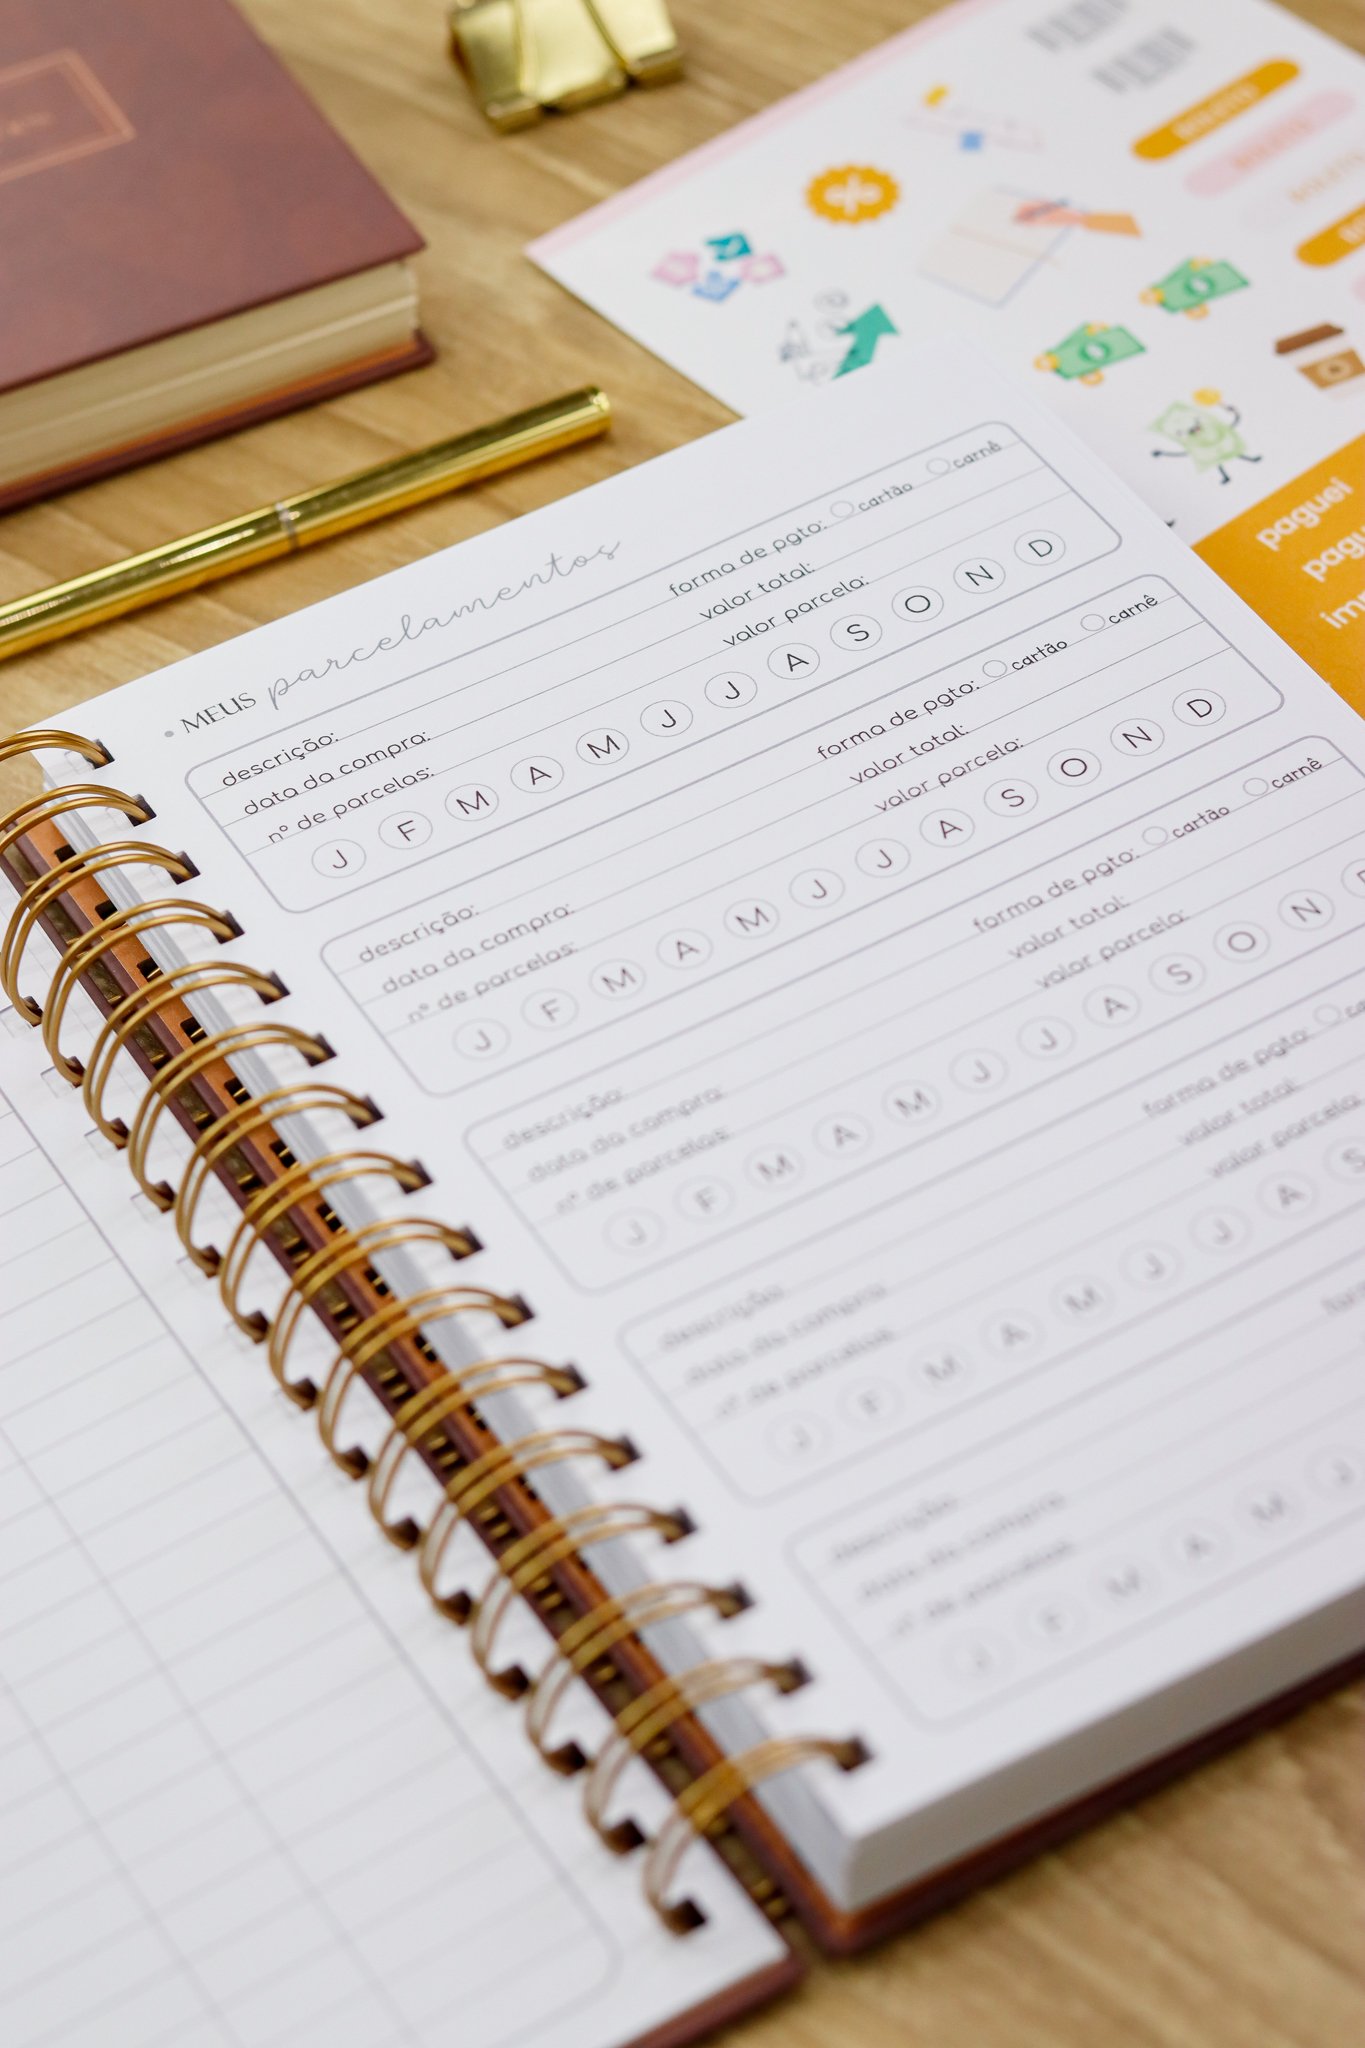 • MEUS parcelamentos
descrição: forma de pgto: cartão carnê
data da compra: valor total:
nº de parcelas: valor parcela:
J F M A M J J A S O N D
descrição: forma de pgto: cartão carnê
data da compra: valor total:
nº de parcelas: valor parcela:
J F M A M J J A S O N D
descrição: forma de pgto: cartão carnê
data da compra: valor total:
nº de parcelas: valor parcela:
J F M A M J J A S O N
descrição: forma de pgto:
data da compra: valor total:
nº de parcelas: valor parcela
J F M A M J J A S
descrição:
data da compra
nº de parcelas
J F M A M J
%
paguei